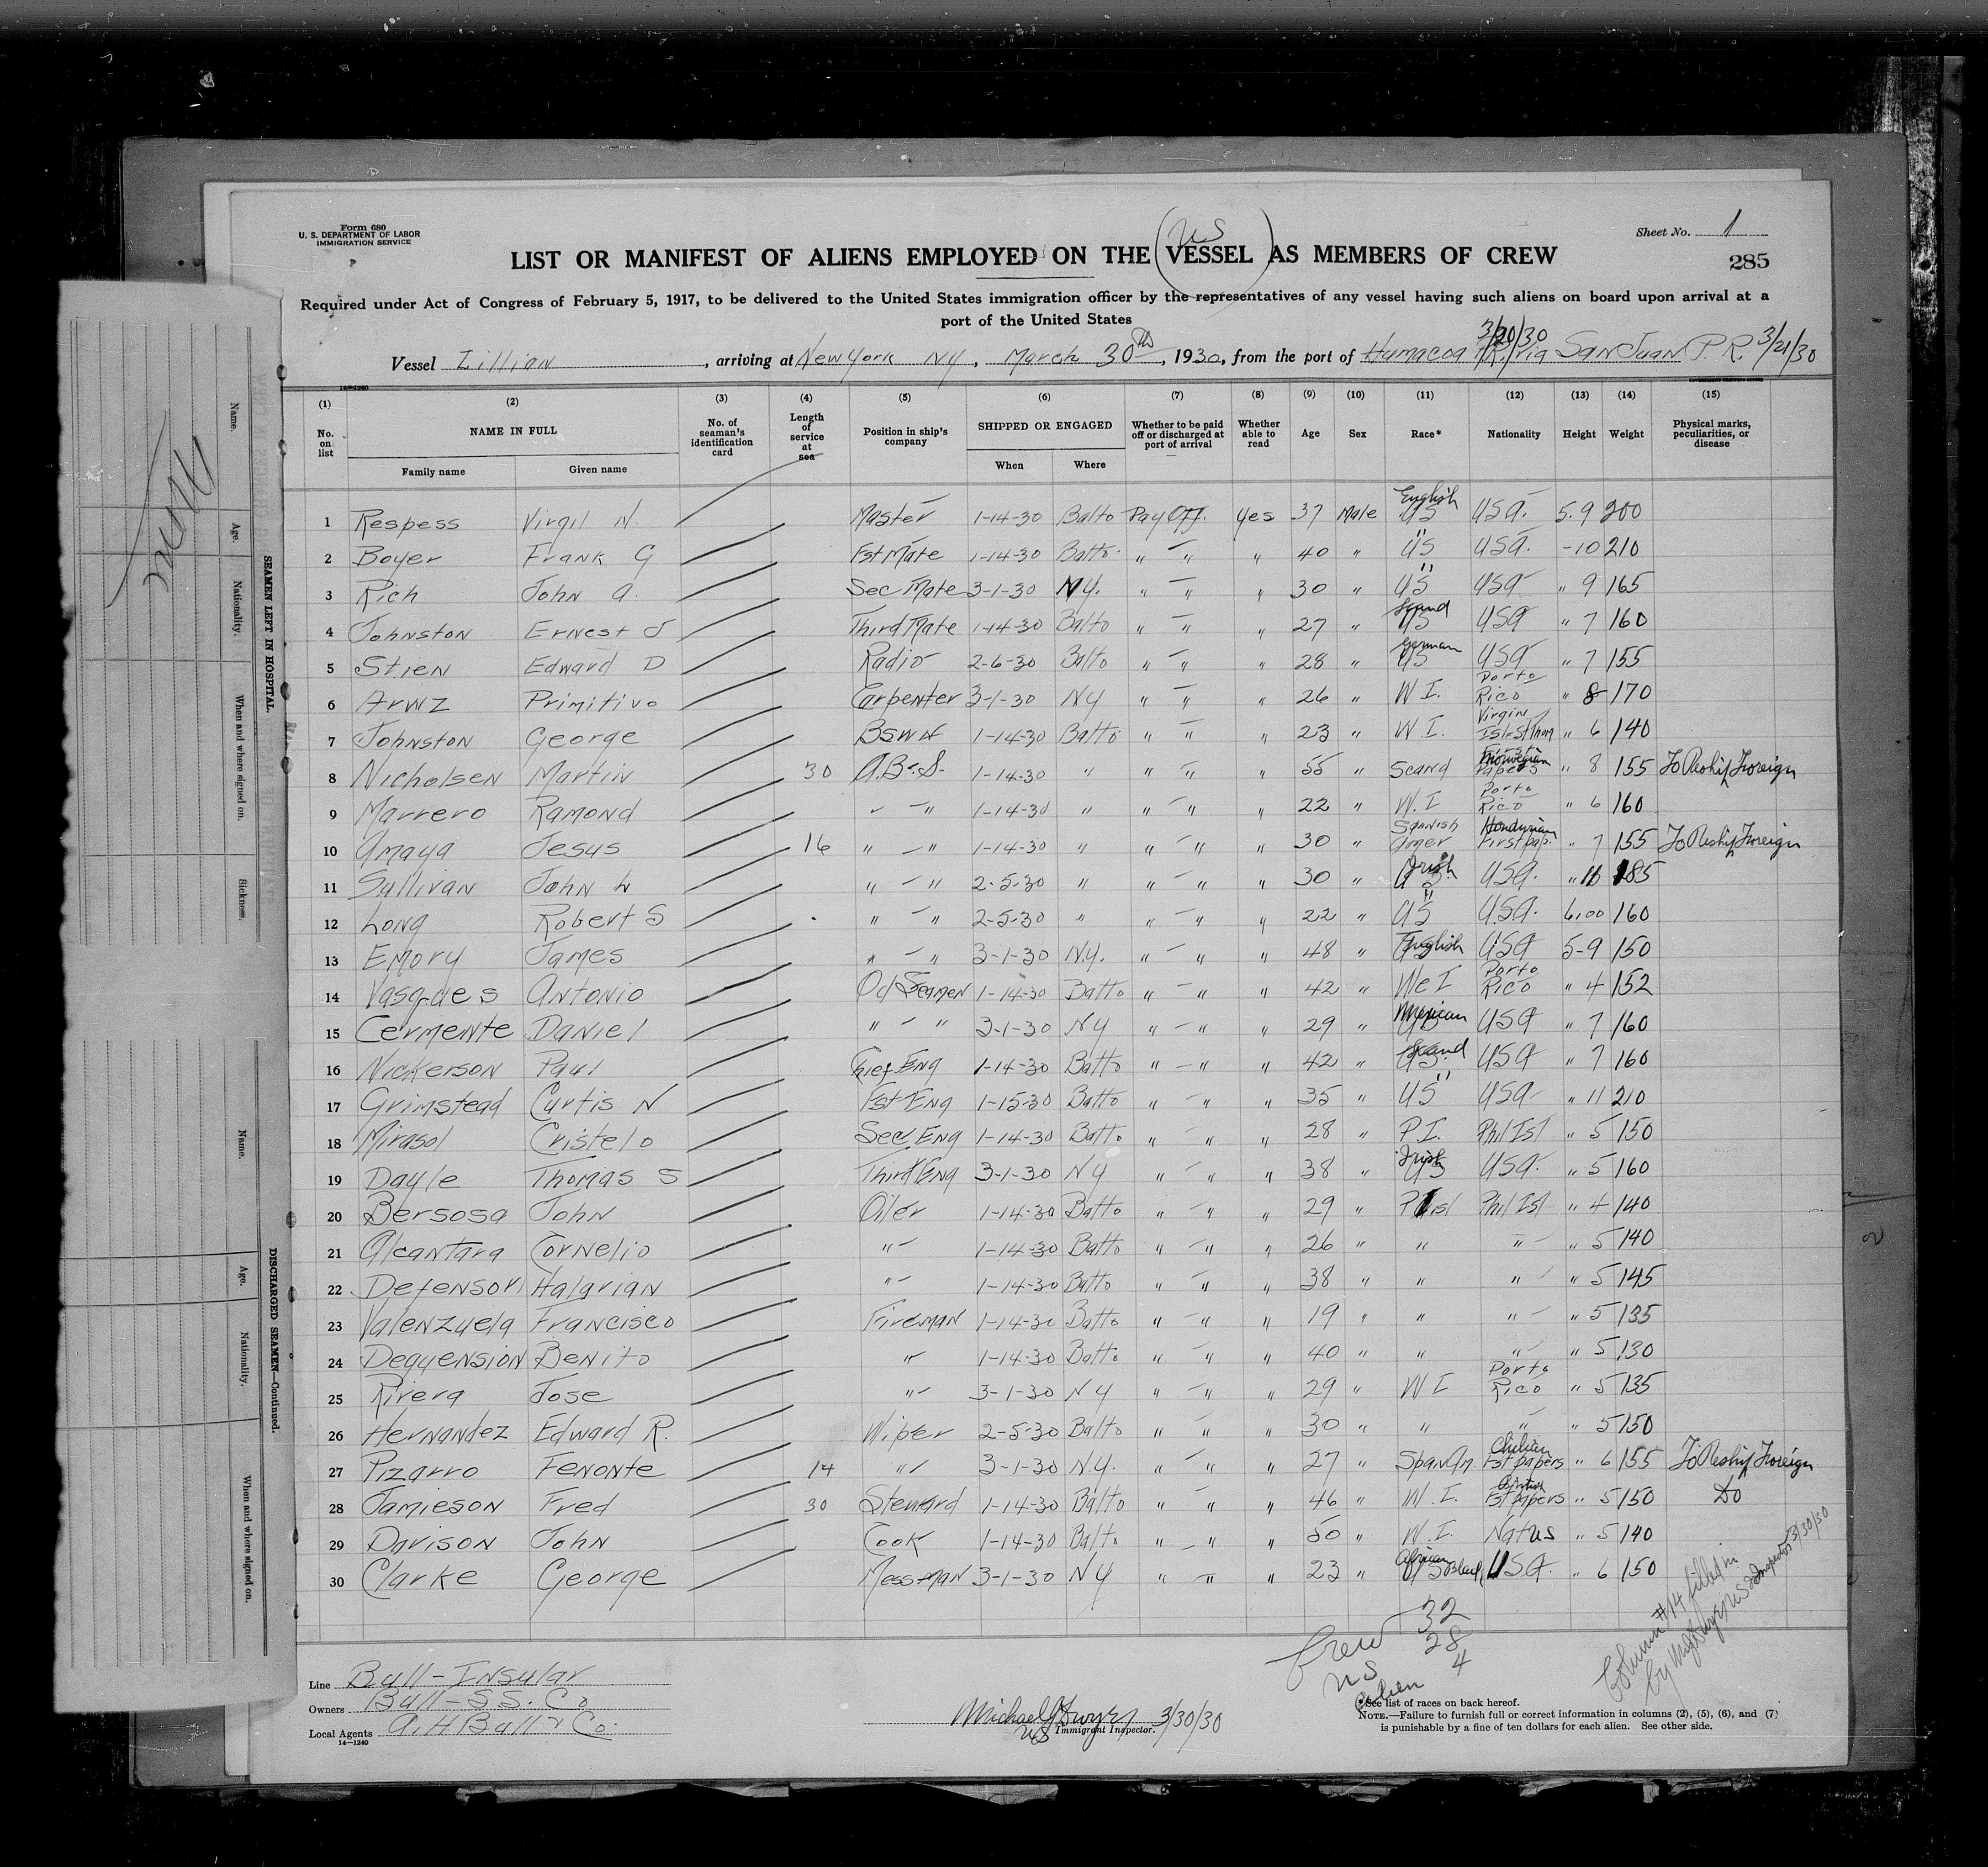 Form 680
U. S. DEPARTMENT OF LABOR
IMMIGRATION SERVICE
Sheet No. 1
285
US
LIST OR MANIFEST OF ALIENS EMPLOYED ON THE VESSEL AS MEMBERS OF CREW
Required under Act of Congress of February 5, 1917, to be delivered to the United States immigration officer by the representatives of any vessel having such aliens on board upon arrival at a
port of the United States
Vessel Lillian, arriving at New York NY, March 30th, 1930, from the port of Humacoa P.R. 3/20/30 via San Juan P.R. 3/21/30
14—1240
(1) (2) (3) (4) (5) (6) (7) (8) (9) (10) (11) (12) (13) (14) (15)
No. on list NAME IN FULL No. of seaman's identification card Length of service at sea Position in ship's company SHIPPED OR ENGAGED Whether to be paid off or discharged at port of arrival Whether able to read Age Sex Race* Nationality Height Weight Physical marks, peculiarities, or disease
Family name Given name When Where
1 Respess Virgil N. Master 1-14-30 Balto Pay Off. Yes 37 Male English US USA. 5.9 200
2 Boyer Frank G Fst Mate 1-14-30 Balto. " " " 40 " " US USA. -10 210
3 Rich John A. Sec Mate 3-1-30 NY. " " " 30 " " US USA " 9 165
4 Johnston Ernest J Third Mate 1-14-30 Balto " " " 27 " Scand US USA " 7 160
5 Stien Edward D Radio 2-6-30 Balto " " " 28 " German US USA " 7 155
6 Arwz Primitivo Carpenter 3-1-30 NY " " " 26 " W I. Porto Rico " 8 170
7 Johnston George Bswn 1-14-30 Balto " " " 23 " W I. Virgin Isl-St Thom " 6 140
8 Nicholsen Martin 30 A.B.S. 1-14-30 " " " " 55 " Scand First Papers Norwegian " 8 155 To Reship Foreign
9 Marrero Ramond " " 1-14-30 " " " " 22 " W. I Porto Rico " 6 160
10 Amaya Jesus 16 " " 1-14-30 " " " " 30 " Spanish Amer Hondurian First pap. " 7 155 To Reship Foreign
11 Sullivan John L " " 2-5-30 " " " " 30 " Irish US USA. " 11 185
12 Long Robert S " " 2-5-30 " " " " 22 " " US U.S.A. 6,00 160
13 Emory James " " 3-1-30 N.Y. " " " 48 " English US USA 5-9 150
14 Vasques Antonio Od Seamen 1-14-30 Balto " " " 42 " W I Porto Rico " 4 152
15 Cermente Daniel " " 3-1-30 NY " " " 29 " Mexican US USA " 7 160
16 Nickerson Paul Chief Eng 1-14-30 Balto " " " 42 " Scand US. USA " 7 160
17 Grimstead Curtis N Fst Eng 1-15-30 Balto " " " 35 " " US USA " 11 210
18 Mirasol Cristelo Sec Eng 1-14-30 Balto " " " 28 " P.I. Phil Isl " 5 150
19 Dayle Thomas S Third Eng 3-1-30 NY " " " 38 " Irish US USA. " 5 160
20 Bersosa John Oiler 1-14-30 Balto " " " 29 " P Isl Phil Isl " 4 140
21 Alcantara Cornelio " 1-14-30 Balto " " " 26 " " " " 5 140
22 Defensor Halarian " 1-14-30 Balto " " " 38 " " " " 5 145
23 Valenzuela Francisco Fireman 1-14-30 Balto " " " 19 " " " " 5 135
24 Dequension Benito " 1-14-30 Balto " " " 40 " " " " 5 130
25 Rivera Jose " 3-1-30 NY " " " 29 " W I Porto Rico " 5 135
26 Hernandez Edward R. Wiper 2-5-30 Balto " " " 30 " " " " 5 150
27 Pizarro Fenonte 14 " 3-1-30 N.Y. " " " 27 " Span Am Chilian Fst papers " 6 155 To Reship Foreign
28 Jamieson Fred 30 Steward 1-14-30 Balto " " " 46 " W. I. British Fst papers " 5 150 Do
29 Davison John Cook 1-14-30 Balto " " " 50 " W. I. Nat us " 5 140
30 Clarke George Messman 3-1-30 NY " " " 23 " African US Black USA. " 6 150
Crew 32
US 28
Alien 4
Column #14 filled in
by US Inspector 3/30/30
Line Bull-Insular
Owners Bull-SS. Co
Local Agents A. H Bull & Co.
14—1240
Michael J Dwyer 3/30/30
US Immigrant Inspector.
*See list of races on back hereof.
NOTE.—Failure to furnish full or correct information in columns (2), (5), (6), and (7)
is punishable by a fine of ten dollars for each alien. See other side.
SEAMEN LEFT IN HOSPITAL.
Name.
Age.
Nationality.
When and where signed on.
Sickness.
None
DISCHARGED SEAMEN—Continued.
Name.
Age.
Nationality.
When and where signed on.